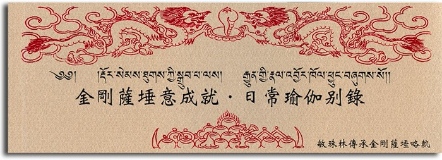 ༄༅། །རྡོར་སེམས་ཐུགས་ཀྱི་སྒྲུབ་པ་ལས། རྒྱུན་གྱི་རྣལ་འབྱོར་ཁོལ་ཕྱུང་བཞུགས་སོ།།
金剛薩埵意成就・日常瑜伽别錄
敏珠林傳承金剛薩埵略軌